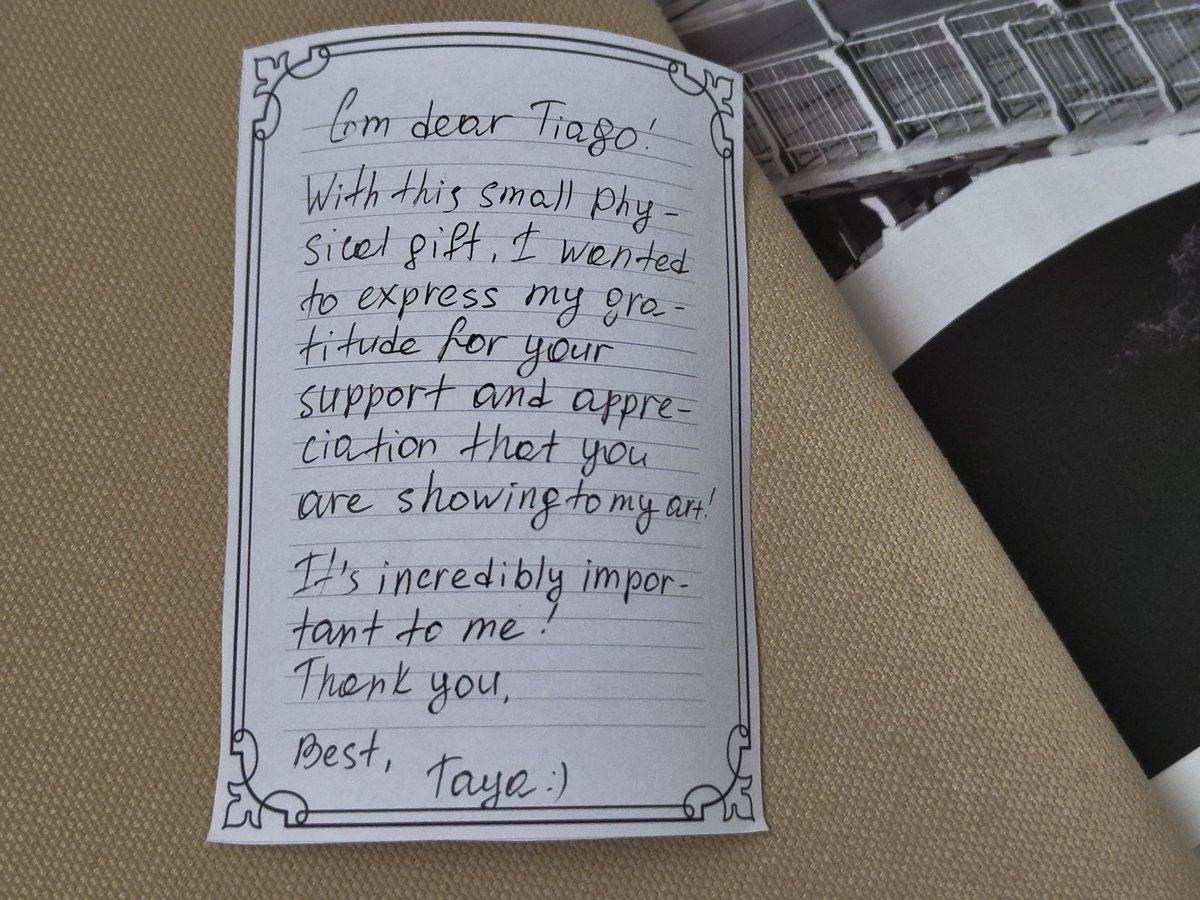 Gm dear Tiago!
With this small phy-
sical gift, I wanted
to express my gra-
titude for your
support and appre-
ciation that you
are showing to my art!
It's incredibly impor-
tant to me!
Thank you,
Best,
Taya :)